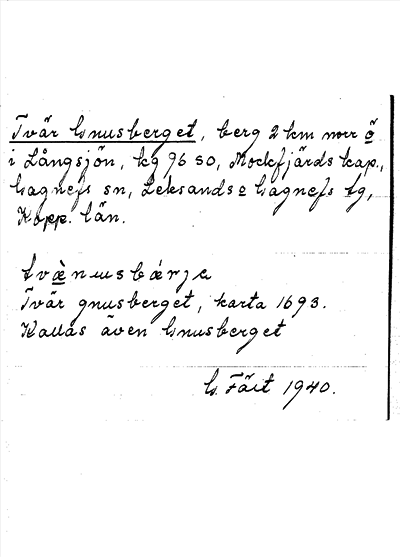 Tvär Gnusberget, berg 2 km norr ö
i Långsjön, kg 96 SO, Mockfjärds kap.,
Gagnefs sn, Leksands o Gagnefs tg,
Kopp. län.
tvä̀nusbárja
Tvär gnusberget, karta 1693.
Kallas även Gnusberget
G. Fält 1940.